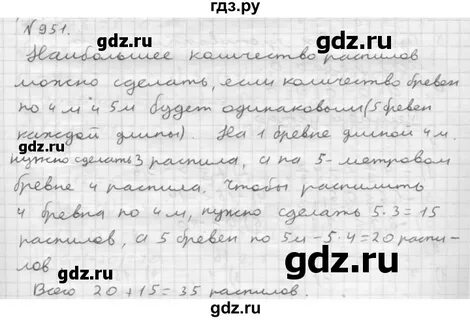 гдз.ру
№951.
Наибольшее количество распилов
gdz.ru gdz.ru
можно сделать, если количество бревен
по 4 м и 5м будет одинаковым (5 бревен
gdz.ru gdz.ru
каждой длины). На 1 бревне длиной 4 м.
нужно сделать 3 распила, а на 5-метровом
gdz.ru gdz.ru
бревне 4 распила. Чтобы распилить
4 бревна по 4м, нужно сделать 5·3=15
gdz.ru gdz.ru
распилов, а 5 бревен по 5м – 5·4=20 распи-
лов
gdz.ru gdz.ru
Всего 20+15=35 распилов.